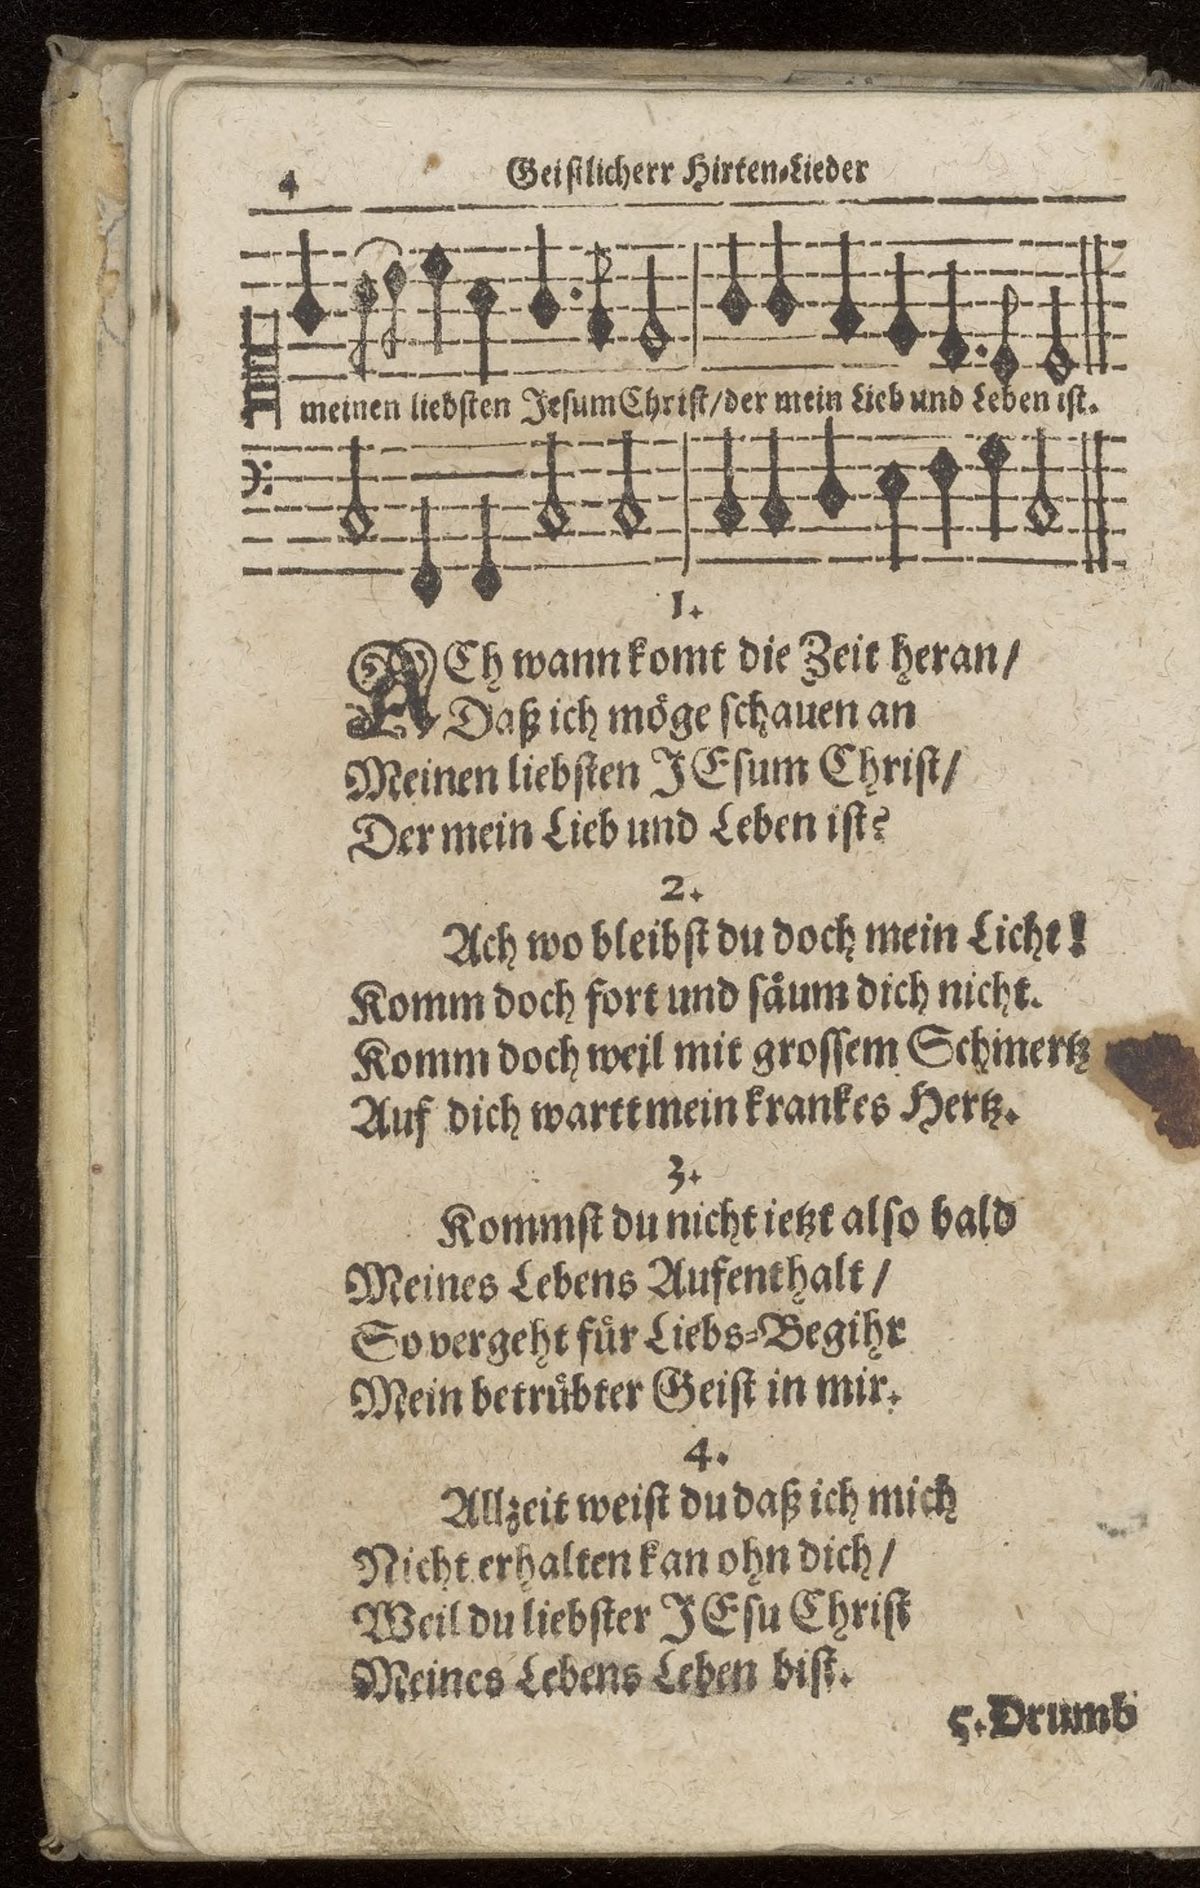 4
Geistlicherr Hirten-Lieder
meinen liebsten Jesum Christ/der mein Lieb und Leben ist.
1.
ACh wann komt die Zeit heran/
Daß ich möge schauen an
Meinen liebsten JEsum Christ/
Der mein Lieb und Leben ist?
2.
Ach wo bleibst du doch mein Licht!
Komm doch fort und säum dich nicht.
Komm doch weil mit grossem Schmertz
Auf dich wartt mein krankes Hertz.
3.
Kommst du nicht ietzt also bald
Meines Lebens Aufenthalt/
So vergeht für Liebs-Begihr
Mein betrübter Geist in mir.
4.
Allzeit weist du daß ich mich
Nicht erhalten kan ohn dich/
Weil du liebster JEsu Christ
Meines Lebens Leben bist.
5. Drumb